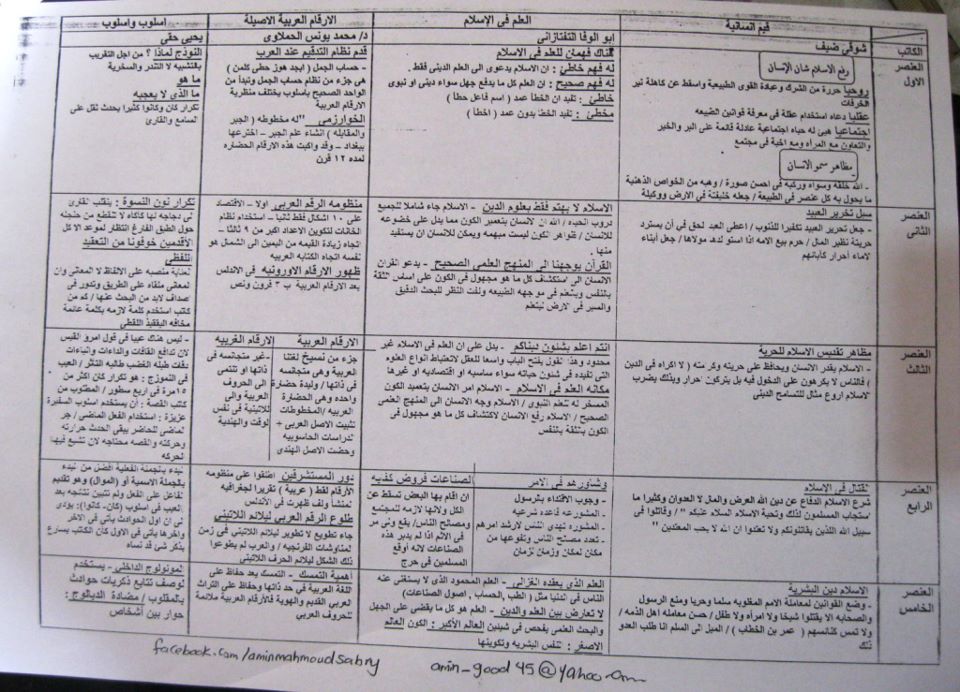 قيم انسانية
العلم فى الإسلام
الأرقام العربية الاصيلة
اسلوب واسلوب
الكاتب
شوقي ضيف
ابو الوفا التفتازاني
د/ محمد يونس الحملاوى
يحيى حقى
العنصر
الاول
رفع الاسلام شأن الإنسان
روحيا حررة من الشرك وعبادة القوى الطبيعية واسقط عن كاهلة نير
الخرفات
عقليا دعاه استخدام عقلة فى معرفة قوانين الطبيعه
اجتماعيا هيئ له حياه اجتماعية عادلة قائمة على البر والخير
والتعاون مع المرأه ومع اخية فى مجتمع
مظاهر سمو الانسان
- الله خلقة وسواه وركبة فى احسن صورة / وهبه من الخواص الذهنية
ما يحول به كل عنصر فى الطبيعة / جعله خليفتة فى الارض ووكيلة
هناك فهمان للعلم فى الاسلام
له فهم خاطئ : ان الاسلام يدعوى الى العلم الدينى فقط .
له فهم صحيح : ان العلم كل ما يدفع جهل سواء دينى او دنيوى
خاطئ : تفيد ان الخطأ عمد ( اسم فاعل خطأ )
مخطئ : تفيد الخطا بدون عمد ( اخطأ )
قدم نظام الترقيم عند العرب
- حساب الجمل ( ابجد هوز حطى كلمن )
هي جزء من نظام حساب الجمل وتبدأ من
الواحد الصحيح باسلوب يختلف منظرية
الارقام العربية
الخوارزمى "له مخطوطه ( الجبر
والمقابله ) انشاء علم الجبر - اخترعها
ببغداد - وقد واكبت هذه الارقام الحضاره
لمده ١٢ قرن
النموذج لماذا ؟ من اجل التقريب
بالتشبيه لا التندر والسخرية
ما هو
ما الذى لا يعجبه
تكرار كان وكانوا كثيرا يحدث ثقل على
المسامع والقارئ
العنصر
الثانى
سبل تحرير العبيد
- جعل تحرير العبيد تكفيرا للذنوب / اعطى العبد لحق فى أن يسترد
حريتة نظير المال / حرم بيع الامه اذا استولدها مولاها / جعل أبناء
لاماء أحرار كأبائهم
الاسلام لا يهتم فقط بعلوم الدين - الاسلام جاء شاملا للجميع
دروب الحيده / الله ان الانسان بتعمير الكون مما يدل على خضوعه
للانسان / ظواهر الكون ليست مبهمه ويمكن للانسان ان يستفيد
منها .
القرآن يوجهنا الى المنهج العلمى الصحيح - يدعو القرآن
الانسان الى استكشاف كل ما هو مجهول فى الكون على اساس الثقة
بالنفس ويتعلم فى مواجهه الطبيعه ولفت النظر للبحث الدقيق
والسير فى الارض ليتعلم
منظومه الرقم العربى اولا - الاقتصاد
على ١٠ اشكال فقط ثانيا - استخدام نظام
الخانات لتكوين الاعداد اكبر من ٩ ثالثا -
اتجاه زيادة القيمه من اليمين الى الشمال هو
نفسه اتجاه الكتابه العربيه
ظهور الارقام الاوروبيه فى الاندلس
بعد الارقام العربية ب ٣ قرون ونص
تكرار نون النسوة : ينقلب القارئ
لى دجاجه لها كأكأه لا تنقطع من حنجته
حول الطبق الفارغ انتظار لموعد الاكل
الاقدمين خوفونا من التعقيد
اللفظى
لعنايه منصبه على الالفاظ لا المعانى وان
لمعانى ملقاه على الطريق وتدور فى
اصداف لابد من البحث عنها / كم من
كاتب استخدم كلمة لازمه بكلمة عائمة
مخافه التعقيد اللفظى
العنصر
الثالث
مظاهر تقديس الاسلام للحرية
- الاسلام يقدر الانسان ويحافظ على حريته وكرمته ( لا اكراه فى الدين
) فالناس لا يكرهون على الدخول فيه بل يتركون احرار وبذلك يضرب
لاسلام اروع مثال للتسامح الدينى
انتم اعلم بشئون دنياكم - يدل على ان العلم فى الاسلام غير
محدود وهذا القول يفتح الباب واسعا للعقل لاحتياط انواع العلوم
التى تفيده فى شئون حياته سواء ساسيه او اقتصاديه او غيرها
مكانه العلم فى الاسلام - الاسلام امر الانسان بتعميد الكون
المسخر له لتعلم النبوى / الاسلام وجه الانسان الى المنهج العلمى
الصحيح / الاسلام رفع الانسان لاكتشاف كل ما هو مجهول فى
الكون بالثقة بالنفس
الارقام العربية
جزء من نسيج لغتنا
العربية وهى متجانسه
فى ذاتها / وليدة حضارة
واحده وهى الحضارة
العربيه /المخطوطات
تثبيت الاصل العربى +
لدراسات الحاسوبيه
وحضت الاصل الهندى
الارقام الغربيه
-غير متجانسه فى
ذاتها او تنتمى
الى الحروف
العربية والى
للاتينية فى نفس
لوقت والهندية
- ليس هناك عيبا فى قول امرؤ القيس
لان تدافع القافات والداءات وانباءات
دقات طبله الغضب طالبه الثائر / العيب
فى النموزج : هو تكرار كان اكثر من
١٥مرة فى اربع سطور / المطلوب من
كاتب القصة : أن يستخدم اسلوب السفيرة
عزيزة : استخدام الفعل الماضى / جر
لماضى للحاضر يبقى الحدث حرارته
وحركته والقصه محتاجه لان تشيع فيها
لحركه
العنصر
الرابع
لقتال فى الإسلام
شرع الاسلام الدفاع عن دين الله العرض والمال لا العدوان وكثيرا ما
ستجاب المسلمون لذلك وتحية الاسلام السلام عليكم " / وقاتلوا فى
سبيل الله اللذين يقاتلونكم ولا تعتدوا ان الله لا يحب المعتدين "
وشاورهم فى الامر
- وجوب الاقتداء بالرسول
- المشورعه قاعده شرعيه
- المشوره تهدى الناس لارشد امرهم
- تعدد مصالح الناس وتنوعها من
مكان لمكان وزمان لزمان
لصناعات فروض كفايه
ان اقام بها البعض تسقط عن
الكل ولانها لازمه للمجتمع
ومصالح الناس/ يقع ولى مر
فى الاثم اذا لم يدبر هذه
الصناعات لانه أوقع
المسلمين فى حرج
دور المستشرقين اطلقوا على منظومه
الأرقام لفظ (عربية ) تقريرا لجغرافيه
لمنشأ ولف ظهرت فى الاندلس
طلوع الرقم العربى ليلائم اللاتينى
جاء تطويع لا تطوير ليلائم اللاتينى فى زمن
لمناوشات الفرنجيه / والعرب لم يطوعوا
ذلك الشكل ليلائم الحرف اللاتينى
لبدء بالجملة الفعلية افضل من البدء
بالجملة الاسمية أو (الموال) وهو تقديم
لفاعل على الفعل ولم تتبين نتائجه بعد
لعيب فى اسلوب (كان- كانوا): يؤدى
لى ان اول الحوادث يأتى فى الاخر
واخرها يأتى فى الاول كأن الكاتب يسارع
بذكر شئ قد نساه
العنصر
الخامس
الاسلام دين البشرية
- وضع القوانين لمعاملة الامم المغلوبه سلما وحربا ومنع الرسول
والصحابه الا يقتلوا شيخا ولا امرأه ولا طفل / حسن معامله اهل الذمه /
ولا تمس كنائسهم ( عمر بن الخطاب ) / الميل الى السلم اذا طلب العدو
ذلك
العلم الذى يعقده الغزالى - العلم المحمود الذى لا يستغنى عنه
الناس فى الدنيا مثل ( الطب ,الحساب , اصول الصناعات)
لا تعارض بين العلم والدين - العلم هو كل ما يقضى على الجهل
والبحث العلمى يفحص فى شيئين العالم الأكبر : الكون العالم
الاصغر : لنفس البشريه وتكوينها
أهمية التمسك - التمسك بعد حفاظ على
اللغة العربية فى حد ذاتها وحفاظ على التراث
لعربى القديم والهوية فالأرقام العربية ملائمة
للحروف العربى
لمونولوج الداخلى - يستخدم
لوصف تتابع ذكريات حوادث
بالمقلوب / مضادة الديالوج :
حوار بين أشخاص
facebook.com/aminmahmoudsabry
amin_good45@yahoo.com